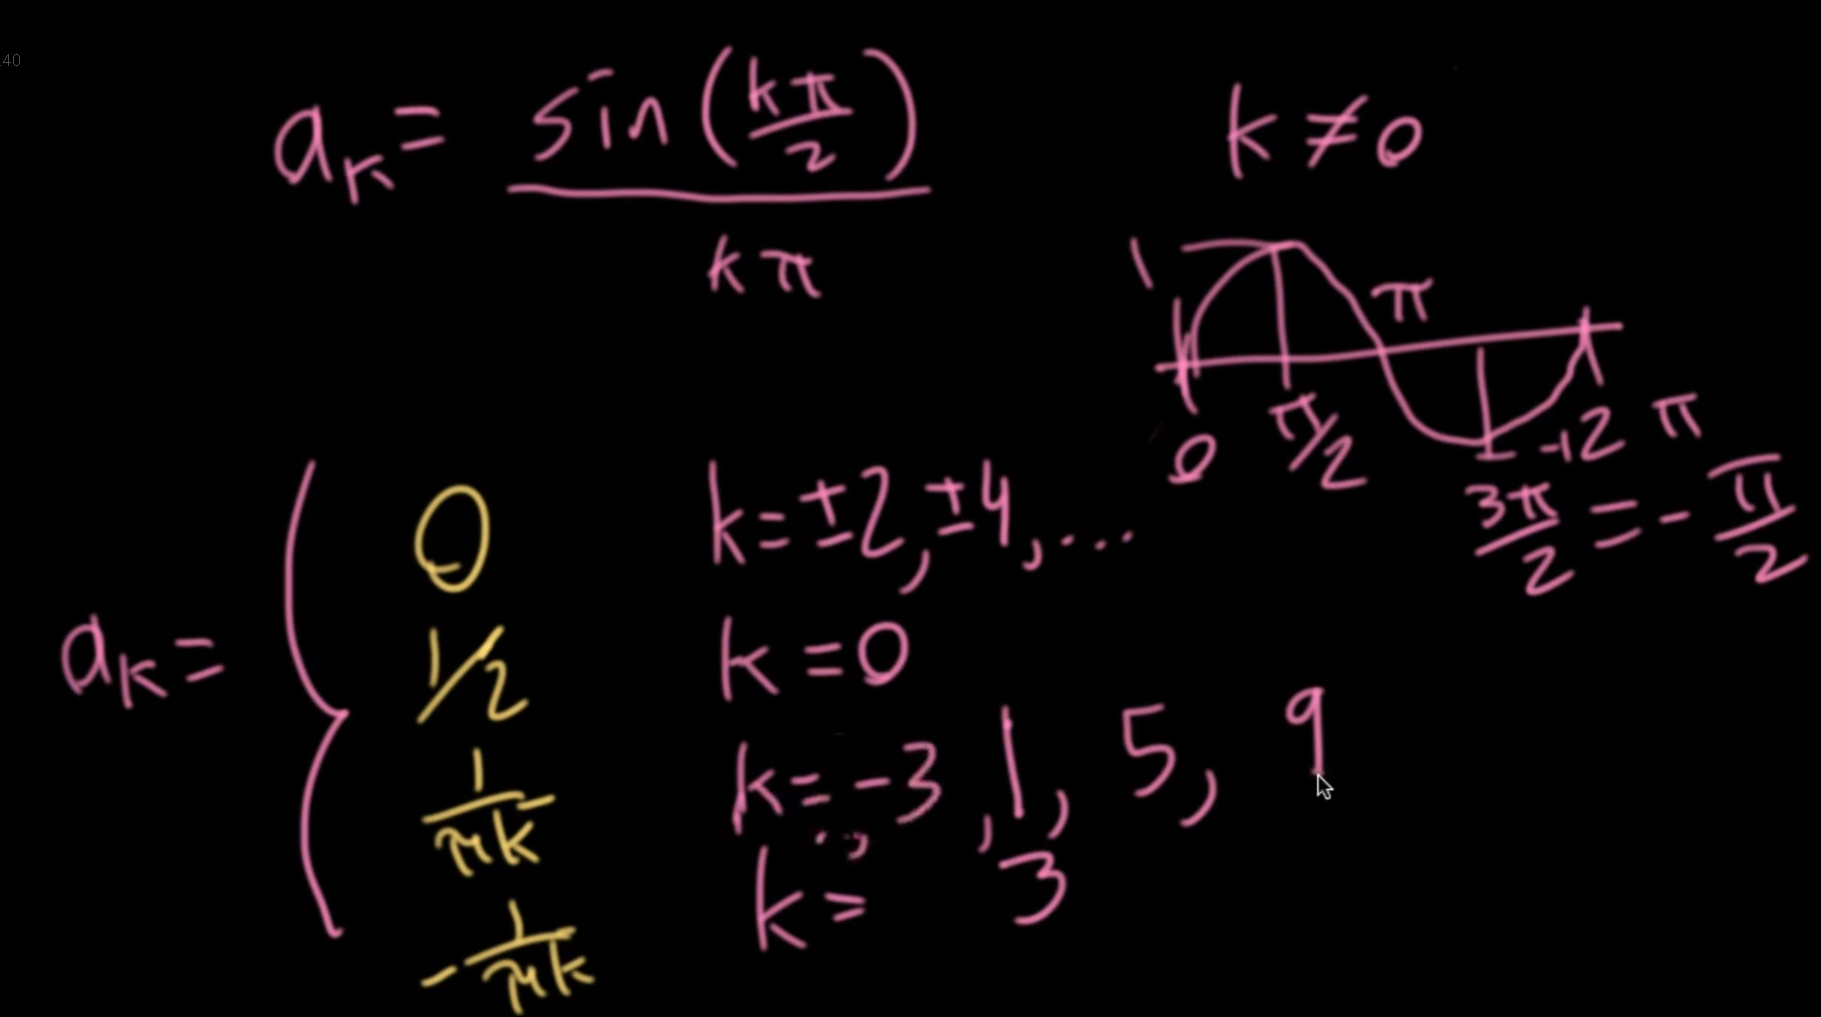 .40
a_k = sin(kπ/2) / kπ
k ≠ 0
1
π
0 π/2 -1 2π
3π/2 = -π/2
a_k = {
0 k = ±2, ±4, ...
1/2 k = 0
1/πk k = -3, 1, 5, 9
-1/πk k = 3